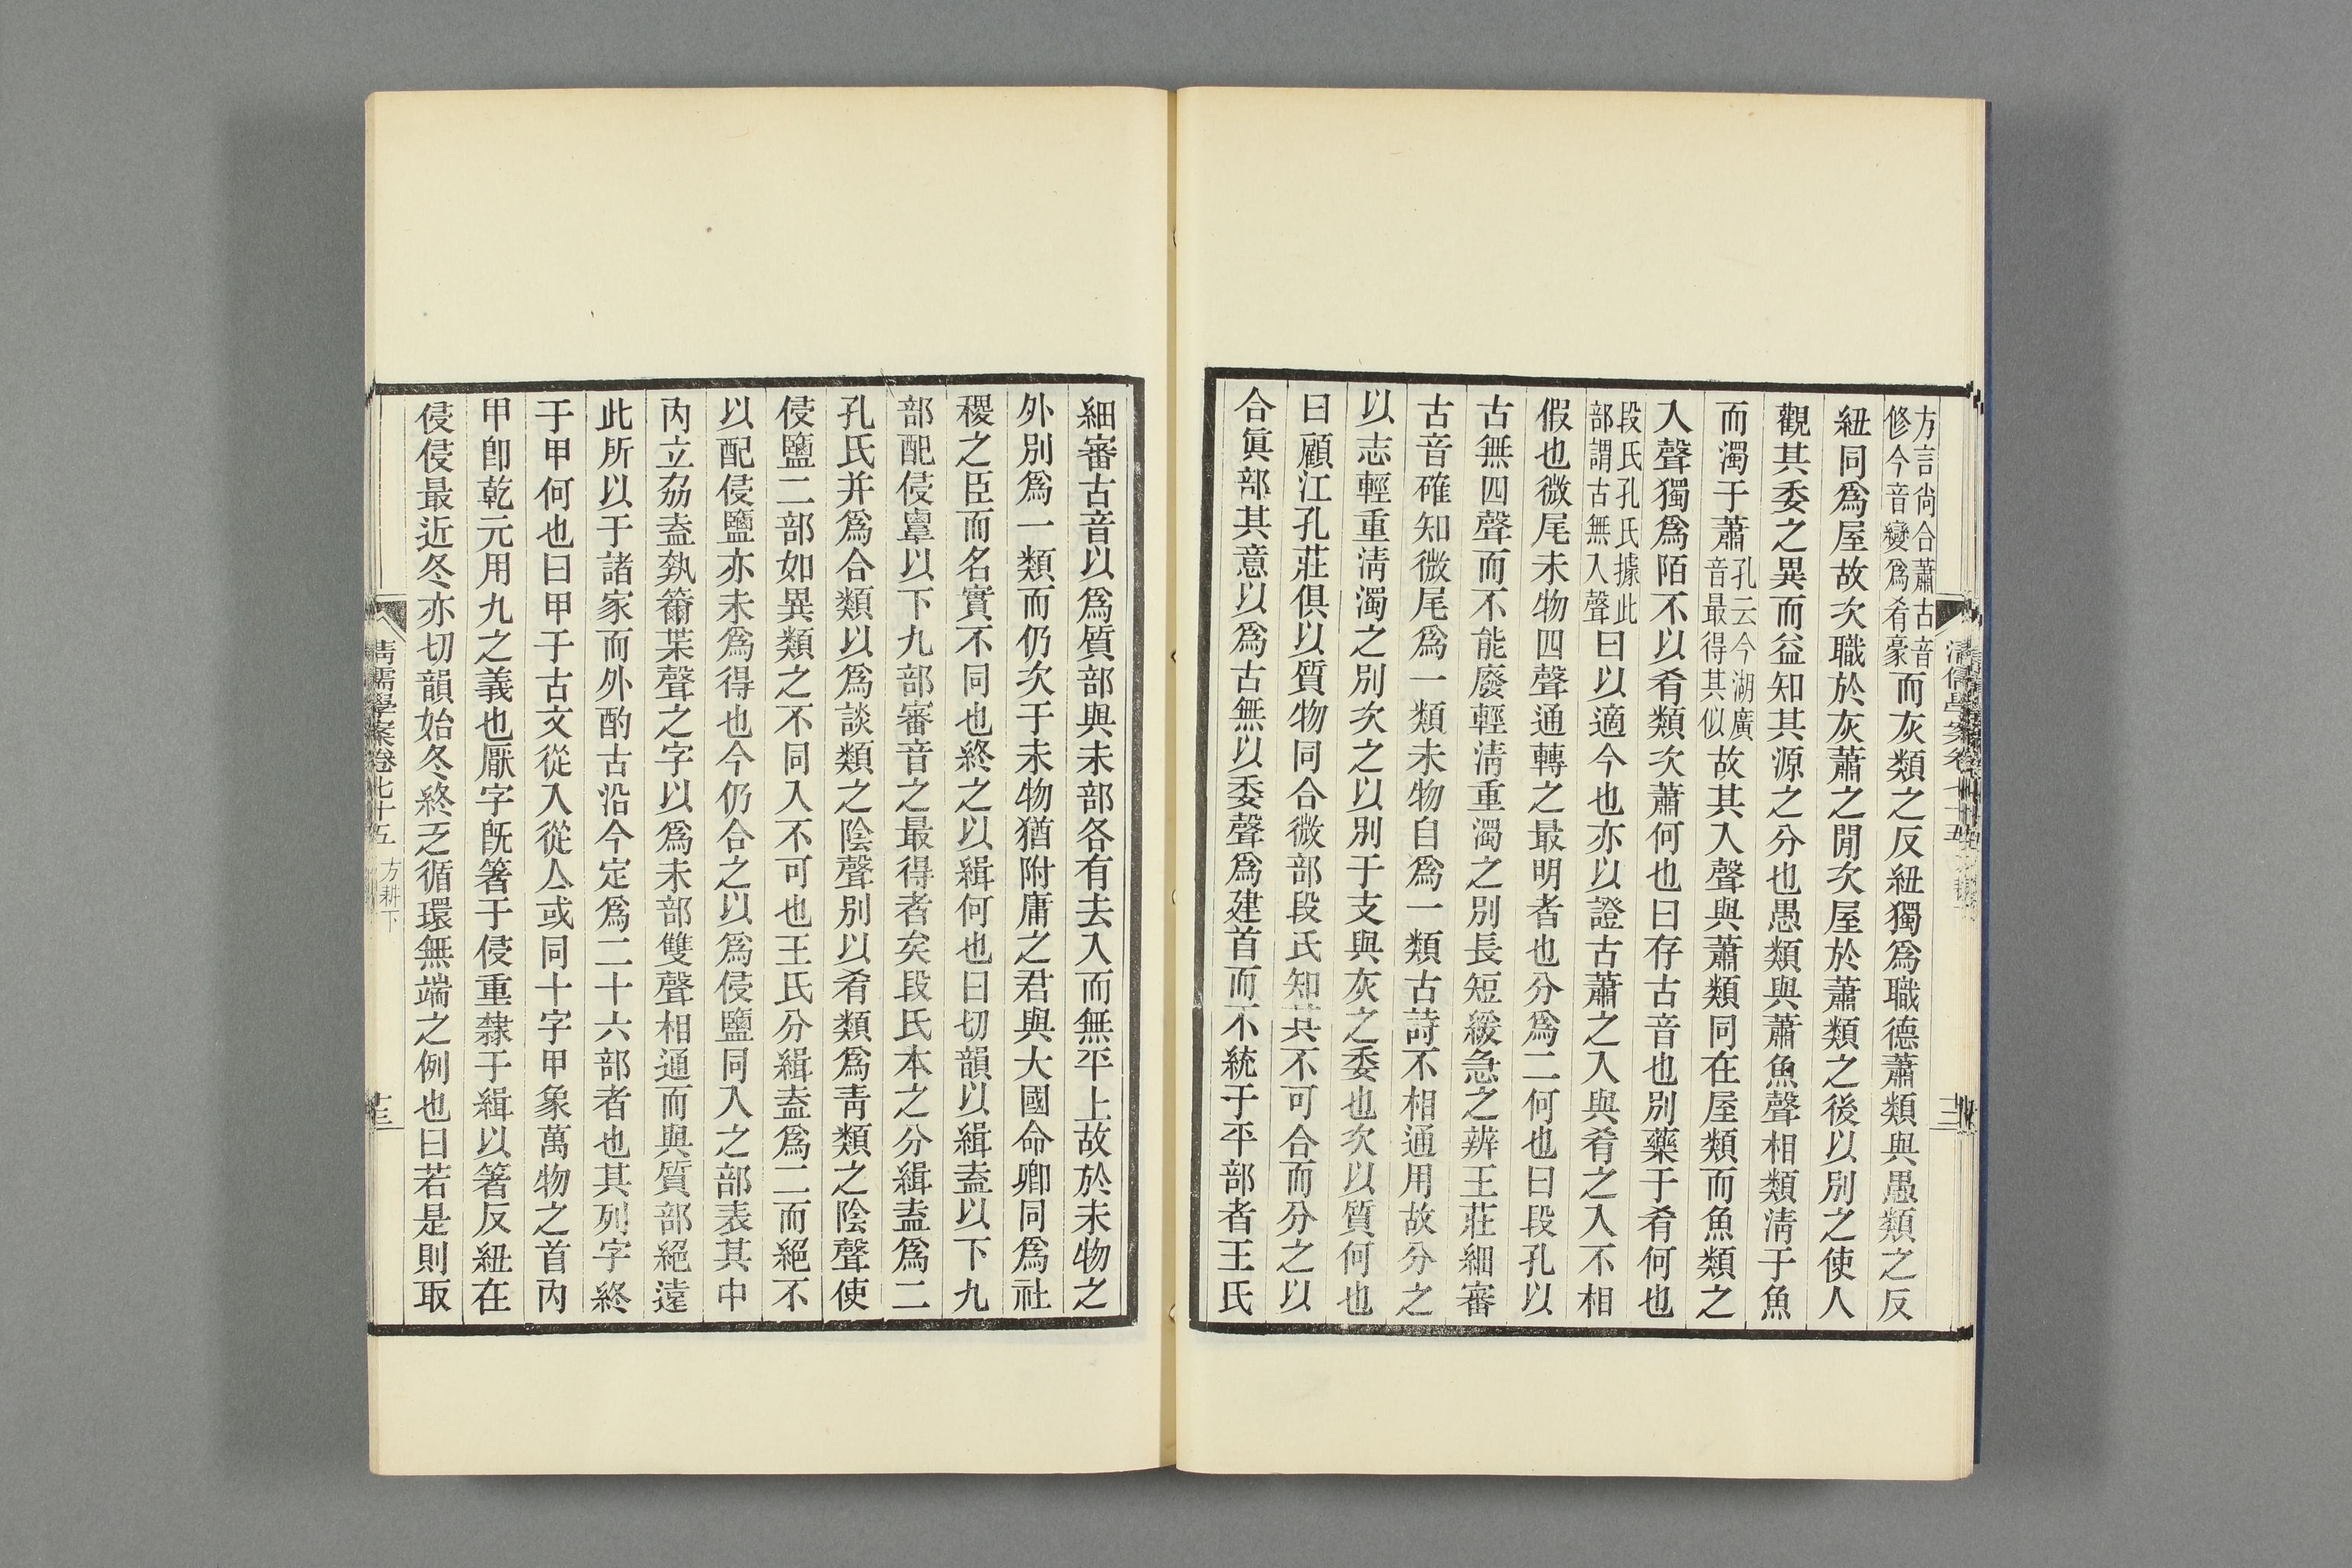 方言尙合蕭古音
修今音變爲肴豪
而灰類之反紐獨爲職德蕭類與愚類之反
紐同爲屋故次職於灰蕭之閒次屋於蕭類之後以別之使人
觀其委之異而益知其源之分也愚類與蕭魚聲相類淸于魚
而濁于蕭
孔云今湖廣
音最得其似
故其入聲與蕭類同在屋類而魚類之
入聲獨爲陌不以肴類次蕭何也曰存古音也別藥于肴何也
段氏孔氏據此
部謂古無入聲
曰以適今也亦以證古蕭之入與肴之入不相
假也微尾未物四聲通轉之最明者也分爲二何也曰段孔以
古無四聲而不能廢輕淸重濁之別長短緩急之辨王莊細審
古音確知微尾爲一類未物自爲一類古詩不相通用故分之
以志輕重淸濁之別次之以別于支與灰之委也次以質何也
曰顧江孔莊俱以質物同合微部段氏知其不可合而分之以
合眞部其意以爲古無以委聲爲建首而不統于平部者王氏
細審古音以爲質部與未部各有去入而無平上故於未物之
外別爲一類而仍次于未物猶附庸之君與大國命卿同爲社
稷之臣而名實不同也終之以緝何也曰切韻以緝盍以下九
部配侵覃以下九部審音之最得者矣段氏本之分緝盍爲二
孔氏并爲合類以爲談類之陰聲別以肴類爲靑類之陰聲使
侵鹽二部如異類之不同入不可也王氏分緝盍爲二而絕不
以配侵鹽亦未爲得也今仍合之以爲侵鹽同入之部表其中
內立劦盍執籋枼聲之字以爲未部雙聲相通而與質部絕遠
此所以于諸家而外酌古沿今定爲二十六部者也其列字終
于甲何也曰甲于古文從入從亼或同十字甲象萬物之首內
甲卽乾元用九之義也厭字旣箸于侵重隸于緝以箸反紐在
侵侵最近冬亦切韻始冬終乏循環無端之例也曰若是則取
淸儒學案卷七十五 方耕下
十三